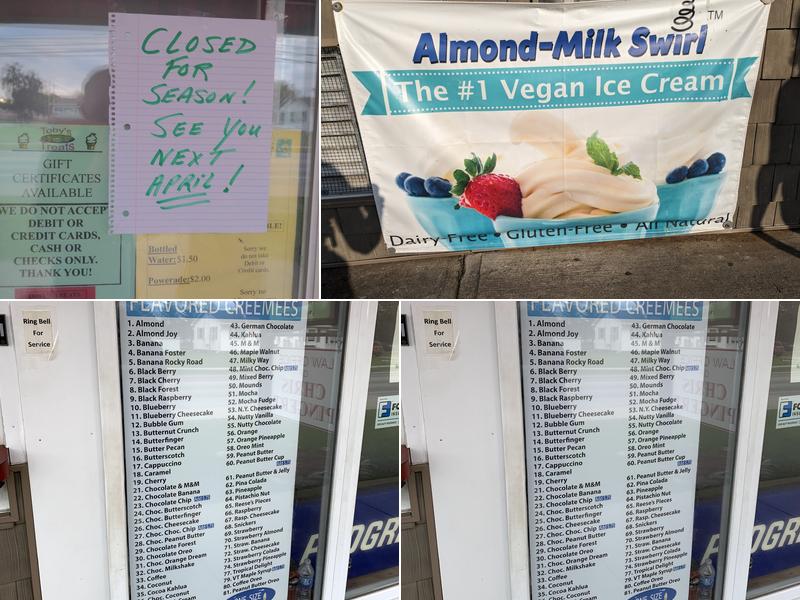 CLOSED
FOR
SEASON!
SEE YOU
NEXT
APRIL!
Toby's
Treats
GIFT
CERTIFICATES
AVAILABLE
WE DO NOT ACCEPT
DEBIT OR
CREDIT CARDS,
CASH OR
CHECKS ONLY.
THANK YOU!
Bottled
Water:$1.50
Powerade:$2.00
Sorry we
do not take
Debit or
Credit cards.
Sorry no
Almond-Milk Swirl
TM
The #1 Vegan Ice Cream
Dairy-Free • Gluten-Free • All Natural
Ring Bell
For
Service
FLAVORED CREEMEES
1. Almond
2. Almond Joy
3. Banana
4. Banana Foster
5. Banana Rocky Road
6. Black Berry
7. Black Cherry
8. Black Forest
9. Black Raspberry
10. Blueberry
11. Blueberry Cheesecake
12. Bubble Gum
13. Butternut Crunch
14. Butterfinger
15. Butter Pecan
16. Butterscotch
17. Cappuccino
18. Caramel
19. Cherry
21. Chocolate & M&M
22. Chocolate Banana
23. Chocolate Chip
24. Choc. Butterscotch
25. Choc. Butterfinger
26. Choc. Cheesecake
27. Choc. Choc. Chip
28. Choc. Peanut Butter
29. Chocolate Forest
30. Chocolate Oreo
31. Choc. Orange Dream
32. Choc. Milkshake
33. Coffee
34. Coconut
35. Cocoa Kahlua
43. German Chocolate
44. Kahlua
45. M & M
46. Maple Walnut
47. Milky Way
48. Mint Choc. Chip
49. Mixed Berry
50. Mounds
51. Mocha
52. Mocha Fudge
53. N.Y. Cheesecake
54. Nutty Vanilla
55. Nutty Chocolate
56. Orange
57. Orange Pineapple
58. Oreo Mint
59. Peanut Butter
60. Peanut Butter Cup
61. Peanut Butter & Jelly
62. Pina Colada
63. Pineapple
64. Pistachio Nut
65. Reese's Pieces
66. Raspberry
67. Rasp. Cheesecake
68. Snickers
69. Strawberry
70. Strawberry Almond
71. Straw. Banana
72. Straw. Cheesecake
73. Strawberry Colada
74. Strawberry Pineapple
77. Tropical Delight
79. VT Maple Syrup
80. Coffee Oreo
81. Peanut Butter Oreo
Ring Bell
For
Service
FLAVORED CREEMEES
1. Almond
2. Almond Joy
3. Banana
4. Banana Foster
5. Banana Rocky Road
6. Black Berry
7. Black Cherry
8. Black Forest
9. Black Raspberry
10. Blueberry
11. Blueberry Cheesecake
12. Bubble Gum
13. Butternut Crunch
14. Butterfinger
15. Butter Pecan
16. Butterscotch
17. Cappuccino
18. Caramel
19. Cherry
21. Chocolate & M&M
22. Chocolate Banana
23. Chocolate Chip
24. Choc. Butterscotch
25. Choc. Butterfinger
26. Choc. Cheesecake
27. Choc. Choc. Chip
28. Choc. Peanut Butter
29. Chocolate Forest
30. Chocolate Oreo
31. Choc. Orange Dream
32. Choc. Milkshake
33. Coffee
34. Coconut
35. Cocoa Kahlua
43. German Chocolate
44. Kahlua
45. M & M
46. Maple Walnut
47. Milky Way
48. Mint Choc. Chip
49. Mixed Berry
50. Mounds
51. Mocha
52. Mocha Fudge
53. N.Y. Cheesecake
54. Nutty Vanilla
55. Nutty Chocolate
56. Orange
57. Orange Pineapple
58. Oreo Mint
59. Peanut Butter
60. Peanut Butter Cup
61. Peanut Butter & Jelly
62. Pina Colada
63. Pineapple
64. Pistachio Nut
65. Reese's Pieces
66. Raspberry
67. Rasp. Cheesecake
68. Snickers
69. Strawberry
70. Strawberry Almond
71. Straw. Banana
72. Straw. Cheesecake
73. Strawberry Colada
74. Strawberry Pineapple
77. Tropical Delight
79. VT Maple Syrup
80. Coffee Oreo
81. Peanut Butter Oreo